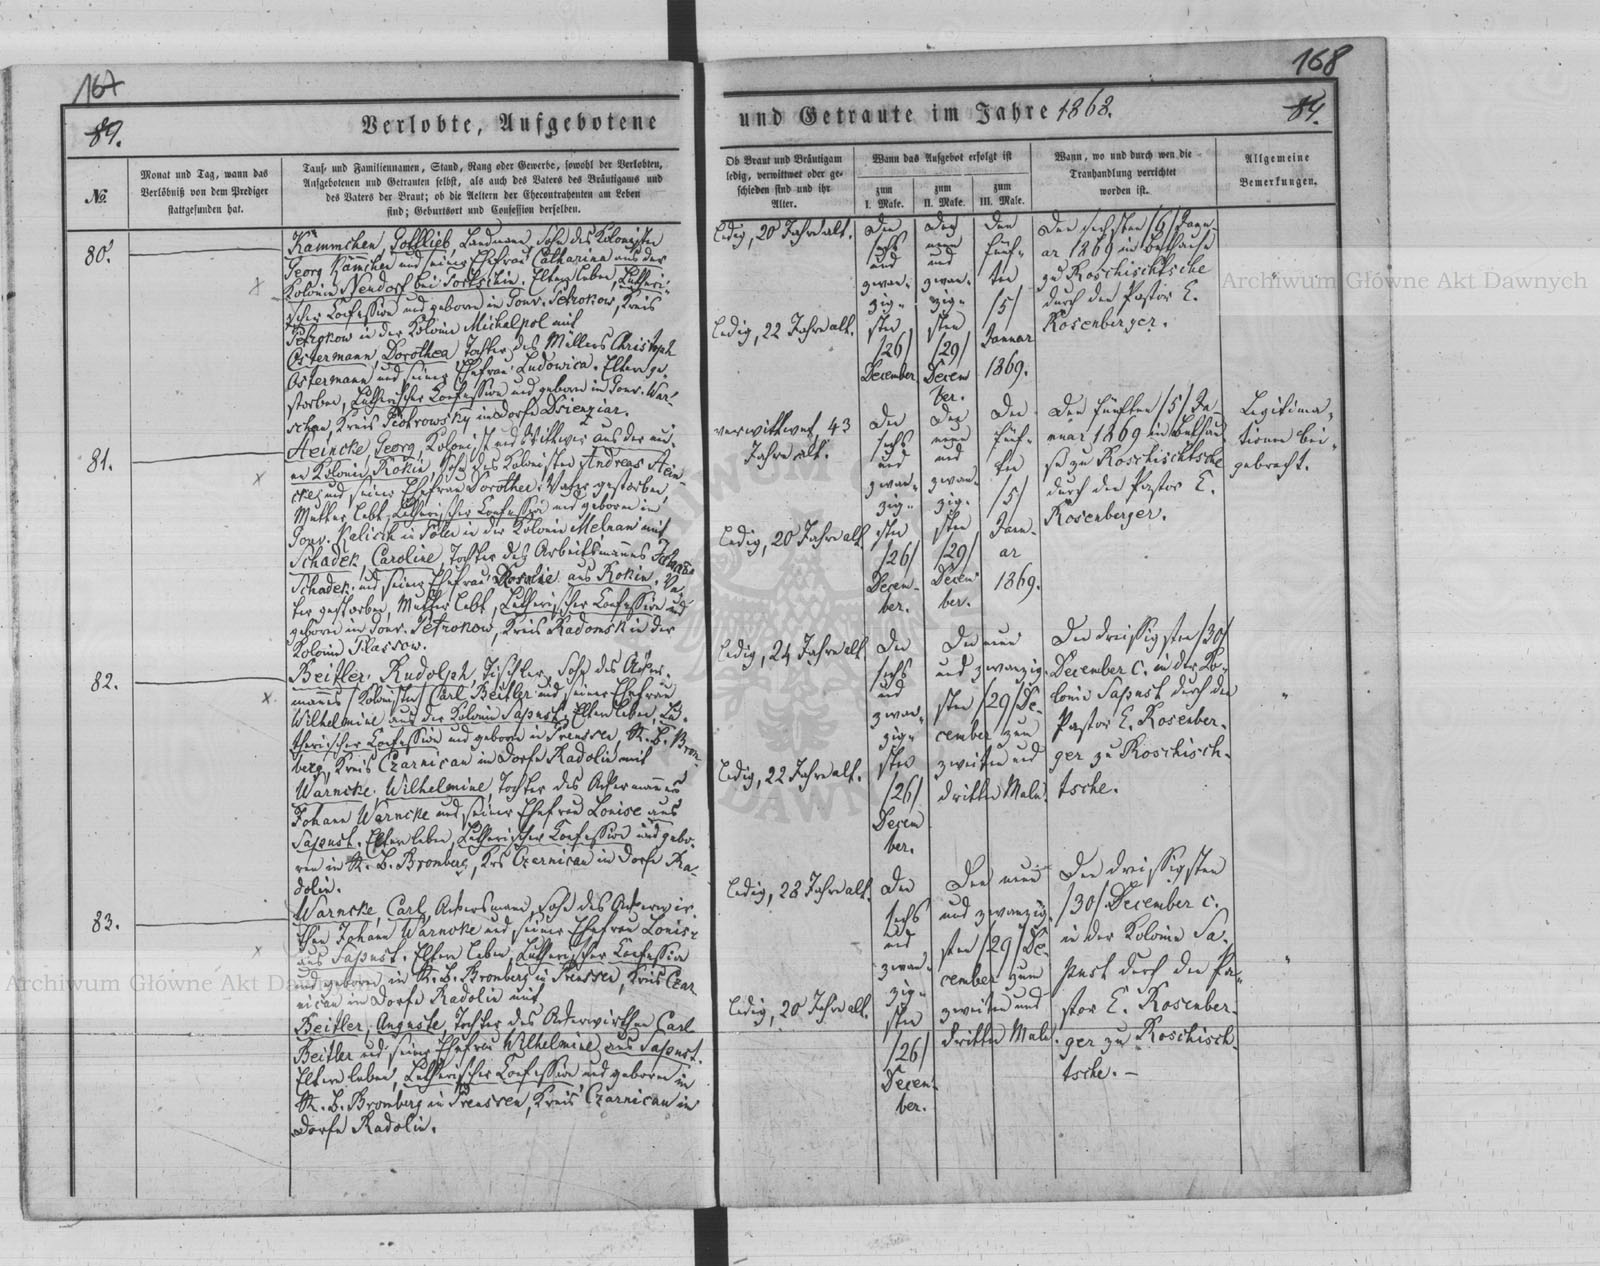 167
89.
Verlobte, Aufgebotene
№.
Monat und Tag, wann das
Verlöbniß von dem Prediger
stattgefunden hat.
Tauf- und Familiennamen, Stand, Rang oder Gewerbe, sowohl der Verlobten,
Aufgebotenen und Getrauten selbst, als auch des Vaters des Bräutigams und
des Vaters der Braut; ob die Aeltern der Ehecontrahenten am Leben
sind; Geburtsort und Confession derselben.
80.
Kämmchen, Gottlieb, Landmann, Sohn des Kolonisten
Georg Kämchen und seiner Ehefrau Catharina aus der
Kolonie Neudorf bei Tortschin. Eltern leben, Lutheri-
scher Confession und geboren in Gouv. Petrokow, Kreis
Petrokow in der Kolonie Michalpol mit
Ostermann, Dorothea, Tochter des Müllers Christoph
Ostermann und seiner Ehefrau Ludowica. Eltern ge-
storben, Lutherischer Confession und geboren in Gouv. War-
schau, Kreis Piotrowsky in Dorfe
81.
Heincke, Georg, Kolonist und Wittwer aus der
Kolonie Rokin, Sohn des Kolonisten Andreas Hein-
cke und seiner Ehefrau Dorothea. Vater gestorben,
Mutter lebt, Lutherischer Confession und geboren in
Gouv. Kalisch in Polen in der Kolonie Melnau mit
Schadek, Caroline, Tochter des Arbeitsmannes Johann
Schadek und seiner Ehefrau Rosalie aus Rokin. Va-
ter gestorben, Mutter lebt, Lutherischer Confession und
geboren in Gouv. Petrokow, Kreis Radomsk in der
Kolonie Klassow.
82.
Beitler, Rudolph, Tischler, Sohn des Acker-
mannes /Kolonisten/ Carl Beitler und seiner Ehefrau
Wilhelmine aus der Kolonie Sapust. Eltern leben, Lu-
therischer Confession und geboren in Preussen, R. B. Brom-
berg, Kreis Czarnican in Dorfe Radolin mit
Warncke, Wilhelmine, Tochter des Ackermannes
Johann Warncke und seiner Ehefrau Louise aus
Sapust. Eltern leben, Lutherischer Confession und gebo-
ren in R. B. Bromberg, Krs Czarnican in Dorfe Ra-
dolin.
83.
Warncke, Carl, Ackersmann, Sohn des Ackerwir-
then Johann Warncke und seiner Ehefrau Louise
aus Sapust. Eltern leben, Lutherischer Confession
und geboren in R. B. Bromberg in Preussen, Kreis Czar-
nican in Dorfe Radolin mit
Beitler, Auguste, Tochter des Ackerwirthen Carl
Beitler und seiner Ehefrau Wilhelmine aus Sapust.
Eltern leben, Lutherischer Confession und geboren in
R. B. Bromberg in Preussen, Kreis Czarnican in
Dorfe Radolin.
168
und Getraute im Jahre 1868.
89.
Ob Braut und Bräutigam
ledig, verwittwet oder ge-
schieden sind und ihr
Alter.
Wann das Aufgebot erfolgt ist
zum
I. Male.
zum
II. Male.
zum
III. Male.
Wann, wo und durch wen die
Trauhandlung verrichtet
worden ist.
Allgemeine
Bemerkungen.
ledig, 20 Jahre alt.
ledig, 22 Jahre alt.
Den
sechs
und
zwan-
zig-
sten
/26/
December
Den
neun
und
zwan-
zig-
sten
/29/
Decem
ber.
Den
fünf-
ten
/5/
Januar
1869.
Den sechsten /6/ Janu-
ar 1869 in Bethause
zu Roschischtsche
durch den Pastor E.
Rosenberger.
"
verwittwet, 43
Jahre alt.
ledig, 20 Jahre alt.
Den
sechs
und
zwan-
zig-
sten
/26/
Decem-
ber.
Den
neun
und
zwan-
zig-
sten
/29/
Decem
ber.
Den
fünf-
ten
/5/
Janu-
ar
1869.
Den fünften /5/ Ja-
nuar 1869 in Bethau-
se zu Roschischtsche
durch den Pastor E.
Rosenberger.
Legitima-
tionen bei-
gebracht.
ledig, 24 Jahre alt.
ledig, 22 Jahre alt.
Den
sechs
und
zwan-
zig-
sten
/26/
Decem
ber.
Den neun
und zwanzig-
sten /29/ De-
cember zum
zweiten und
dritten Male.
Den dreissigsten /30/
December c. in der Ko-
lonie Sapust durch den
Pastor E. Rosenber-
ger zu Roschisch-
tsche.
"
ledig, 28 Jahre alt.
ledig, 20 Jahre alt.
Den
sechs
und
zwan-
zig-
sten
/26/
Decem-
ber.
Den neun
und zwanzig-
sten /29/ De-
cember zum
zweiten und
dritten Male.
Den dreissigsten
/30/ December c.
in der Kolonie Sa-
pust durch den Pa-
stor E. Rosenber-
ger zu Roschisch-
tsche. —
"
Archiwum Główne Akt Dawnych
Archiwum Główne Akt Dawnych